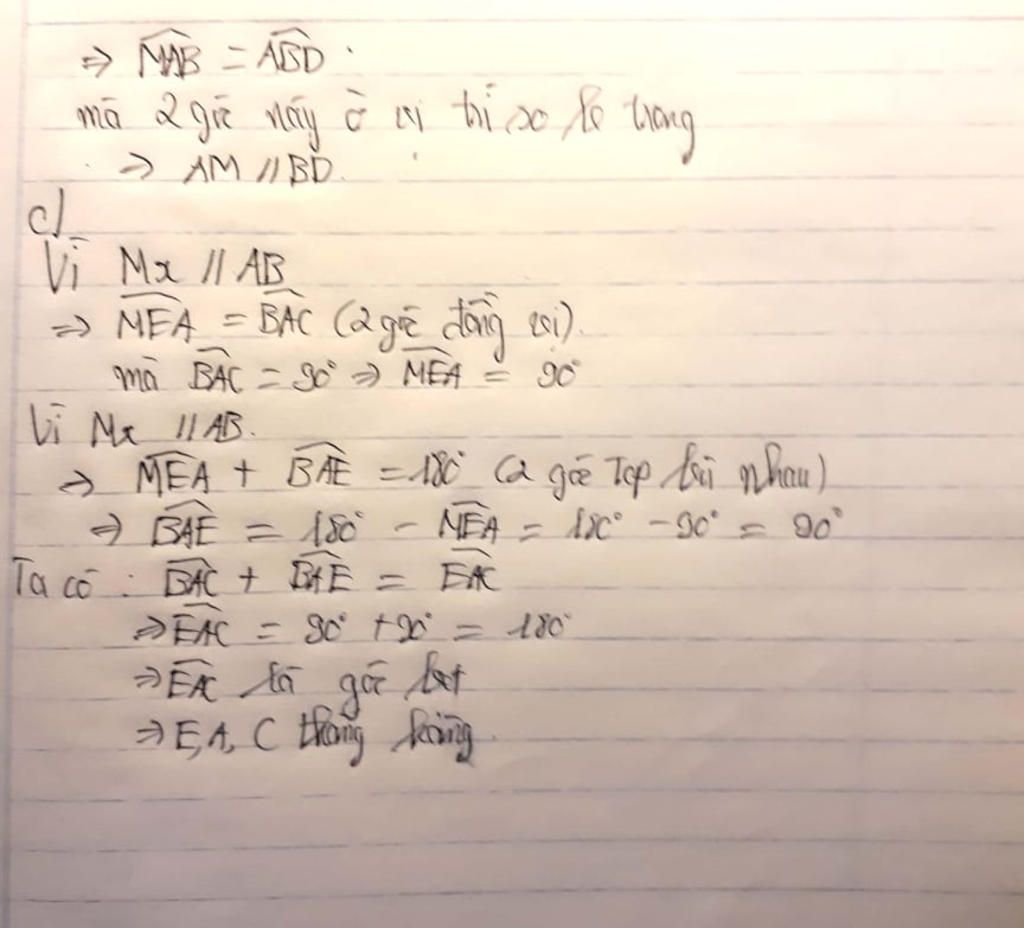 ⇒ \widehat{MAB} = \widehat{ABD}.
mà 2 góc này ở vị trí so le trong
⇒ AM // BD.
c/
Vì Mx // AB
⇒ \widehat{MEA} = \widehat{BAC} (2 góc đồng vị).
mà \widehat{BAC} = 90° ⇒ \widehat{MEA} = 90°
Vì Mx // AB.
⇒ \widehat{MEA} + \widehat{BAE} = 180° (2 góc TCP bù nhau)
⇒ \widehat{BAE} = 180° - \widehat{MEA} = 180° - 90° = 90°
Ta có : \widehat{BAC} + \widehat{BAE} = \widehat{EAC}
⇒ \widehat{EAC} = 90° + 90° = 180°
⇒ \widehat{EAC} là góc bẹt
⇒ E, A, C thẳng hàng.